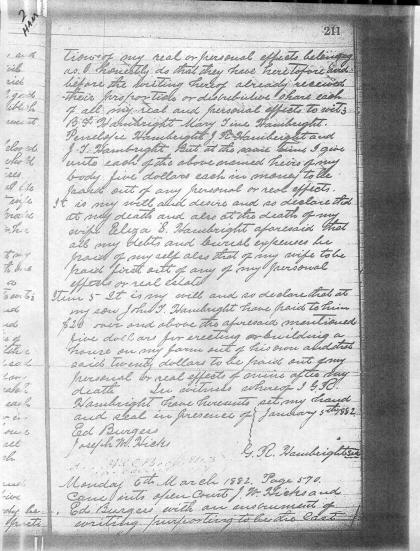 211
tion of my real or personal effects believing
as I honestly do that they have heretofore and
before the writing hereof already received
their proportion or distributive share each
of all my real and personal effects to wit;
B. F. Hambright Mary Hambright
Penelope Hambright J. R. Hambright and
J. T. Hambright But at the same time I give
unto each of the above named heirs of my
body five dollars each in money to be
paid out of any personal or real effects.
It is my will and desire and so declare that
at my death and also at the death of my
wife Eliza E. Hambright aforesaid that
all my debts and burial expenses be
paid of my self also that of my wife to be
paid first out of any of my personal
effects or real estate
Item 5 It is my will and so declare that at
my son John T. Hambright have paid to him
$20 over and above the aforesaid mentioned
five dollars for erecting or building a
house on my farm out of his own
said twenty dollars to be paid out of my
personal or real effects of mine after my
death In witness whereof I G. R.
Hambright have hereunto set my hand
and seal in presence of January 5th 1882
Ed Burgess
Joseph W. Hicks
G. R. Hambright
Monday 6th March 1882. Page 570.
Came into open Court J. W. Hicks and
Ed Burgess with an instrument of
writing purporting to be the Last